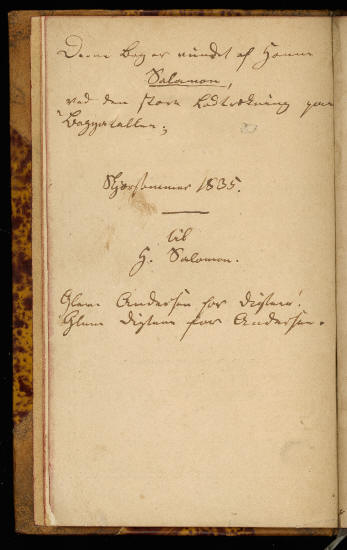 Denne Bog er vundet af Hanne
Salomon,
ved den store Lodtrækning paa
Bakken;
Skjærsommer 1835.
til
H. Salomon.
Glem Andersen for Digteren!
Glem Digteren for Andersen.